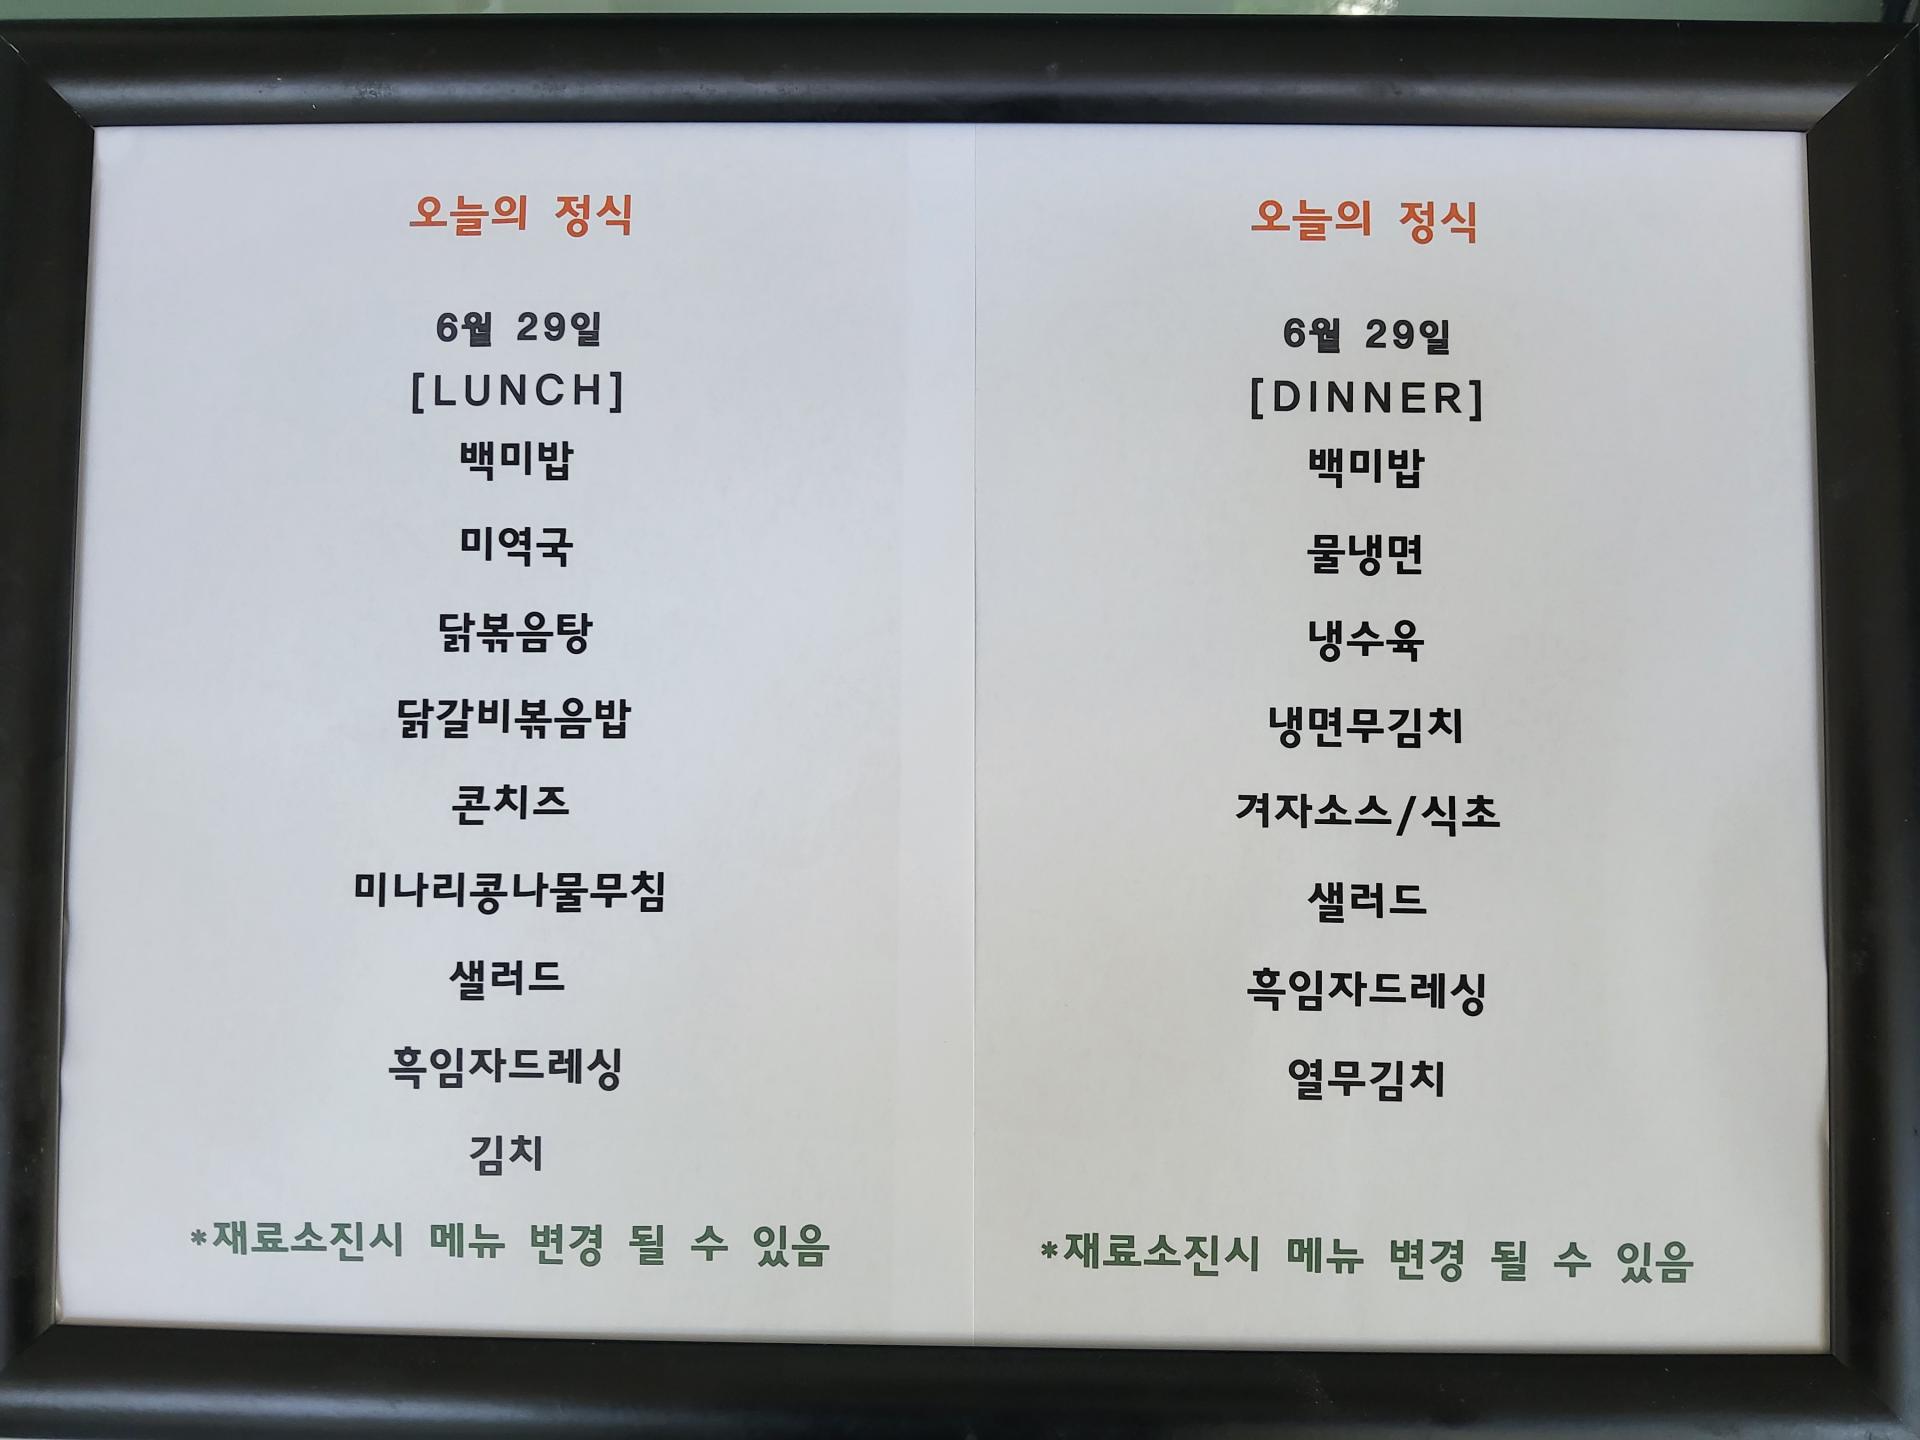 오늘의 정식
6월 29일
[LUNCH]
백미밥
미역국
닭볶음탕
닭갈비볶음밥
콘치즈
미나리콩나물무침
샐러드
흑임자드레싱
김치
*재료소진시 메뉴 변경 될 수 있음
오늘의 정식
6월 29일
[DINNER]
백미밥
물냉면
냉수육
냉면무김치
겨자소스/식초
샐러드
흑임자드레싱
열무김치
*재료소진시 메뉴 변경 될 수 있음